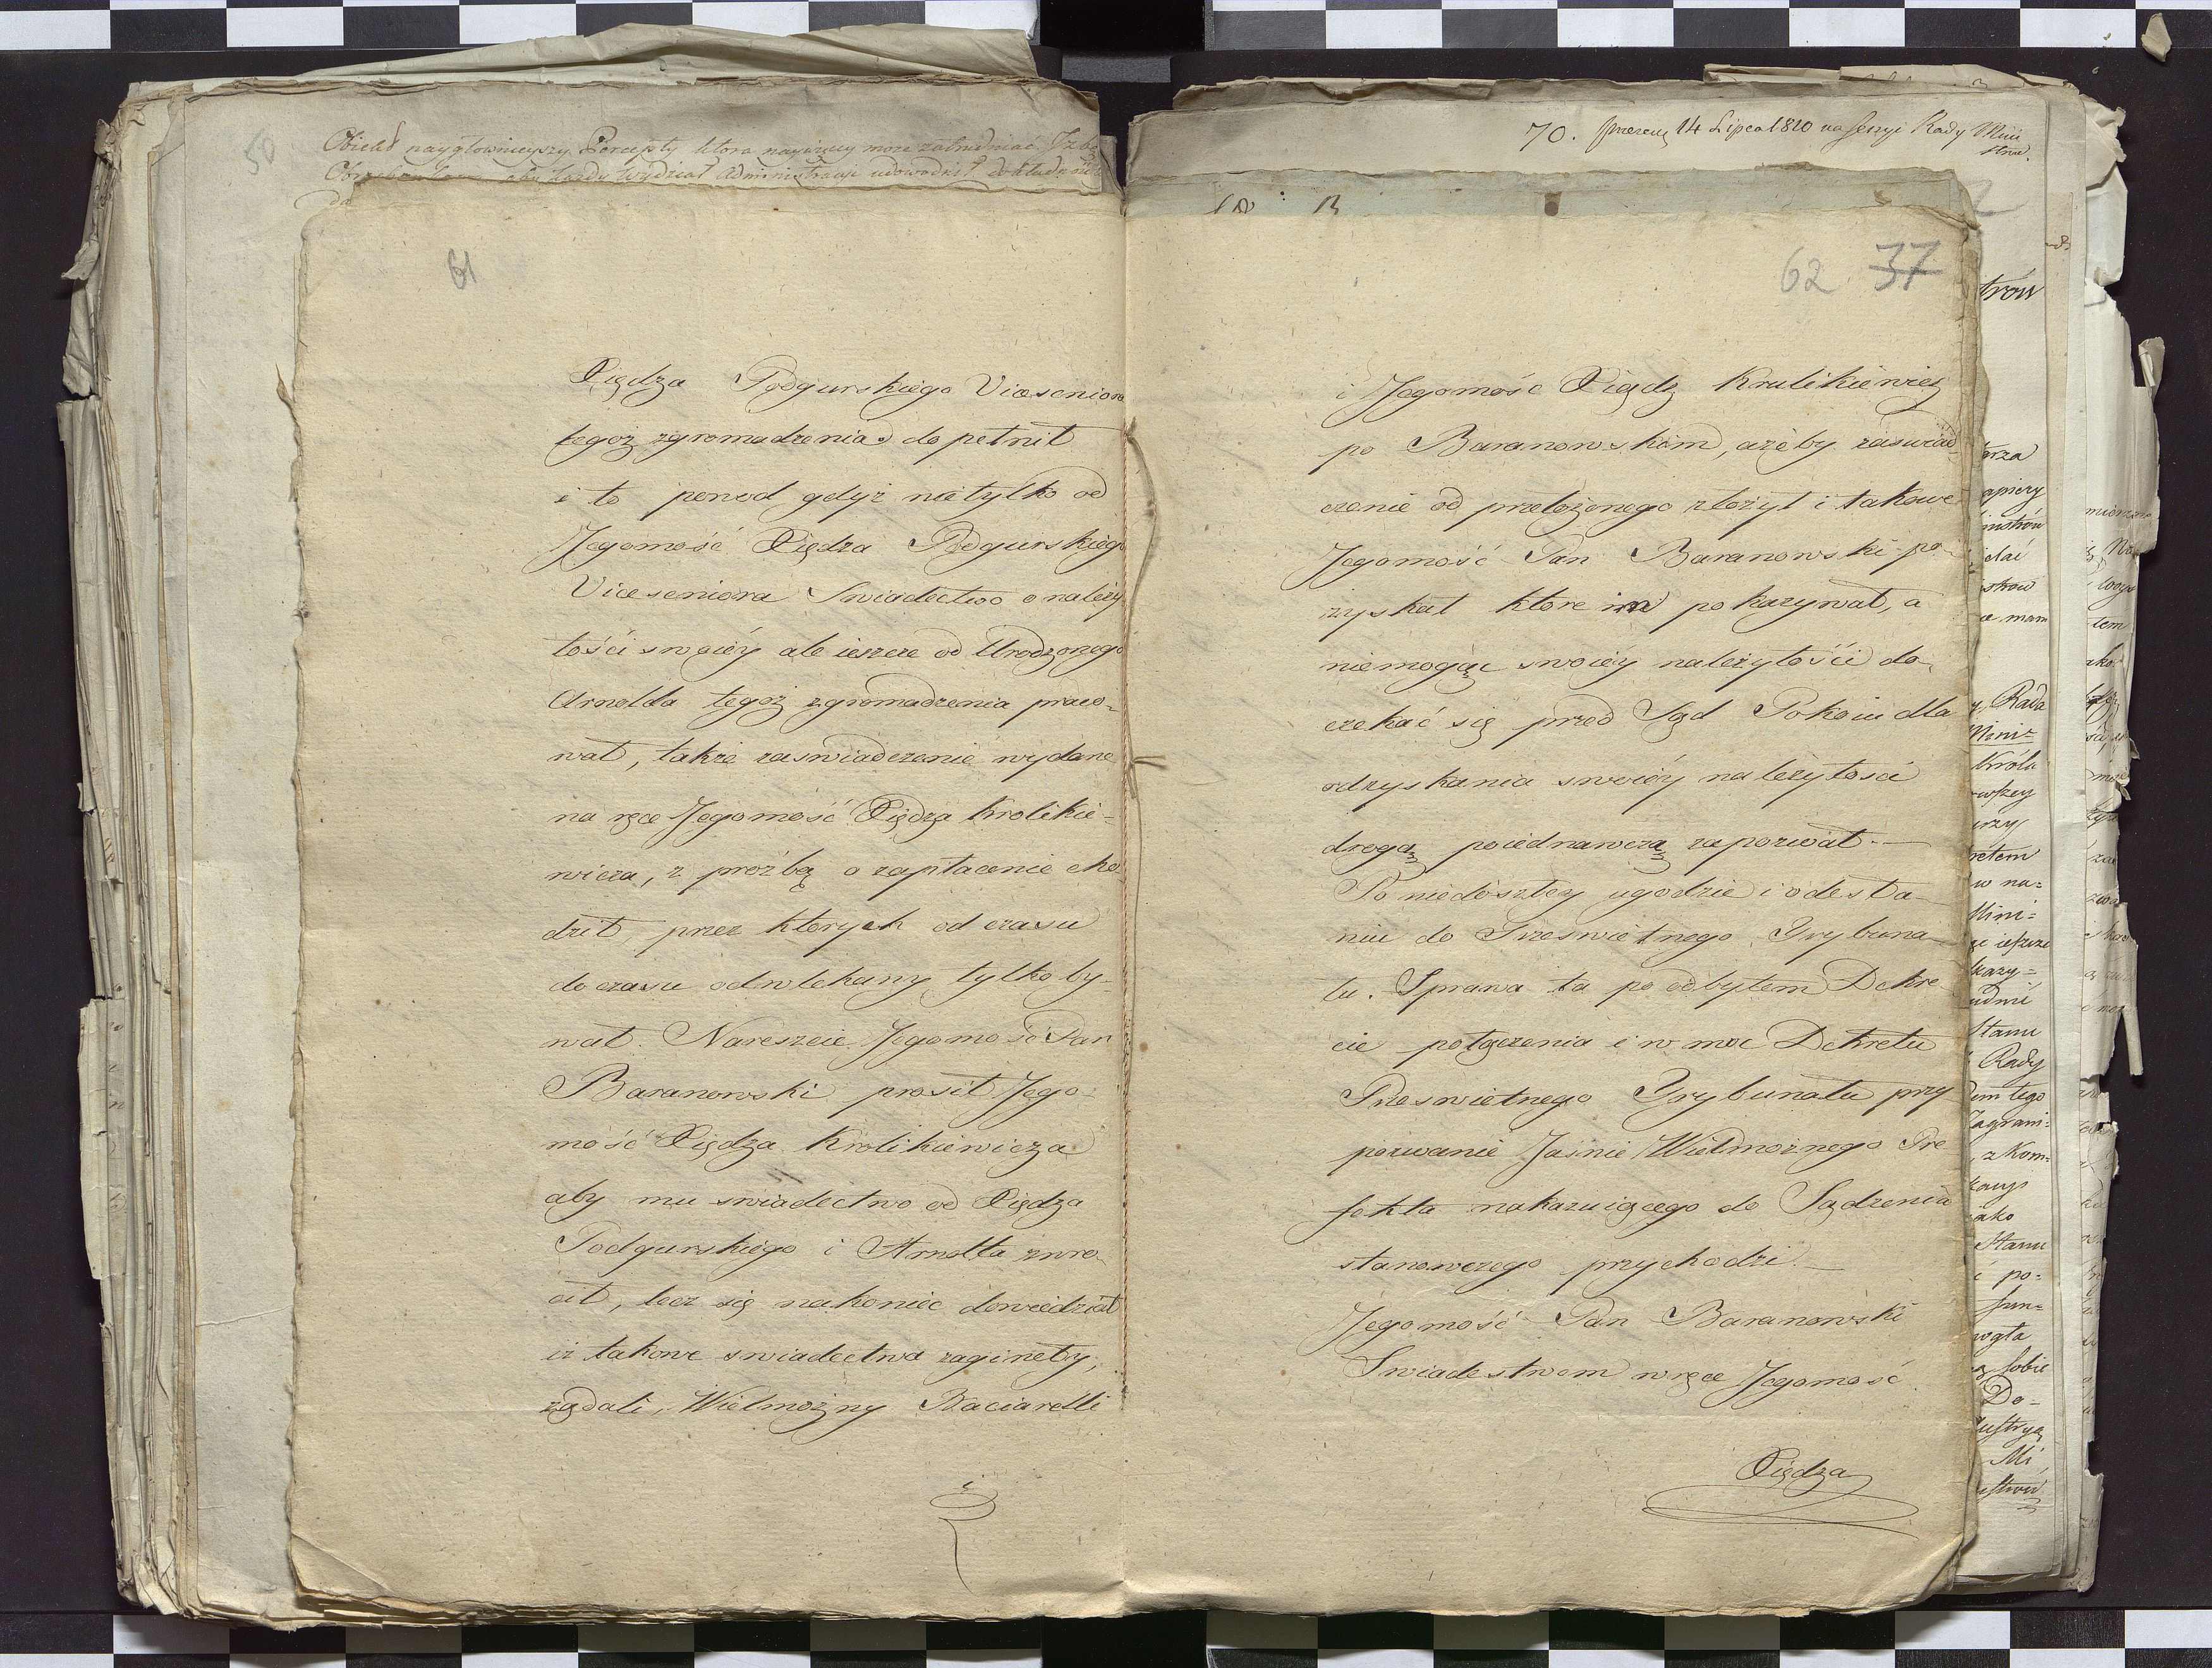 50
Obiekt naygłownieyszy Percepty ktora naywięcey może zatrudniać Izbę
aby każdy Wydział Administracyi udowodnił dokładność
da
61
Xiędza Podgurskiego Viceseniora
tegoż zgromadzenia dopełnił
i to powod gdyż nietylko od
Jegomość Xiędza Podgurskiego
Viceseniora Swiadectwo o należy
tości swoiéy ale ieszcze od Urodzonego
Arnolda tegoż zgromadzenia praco-
wał, także zaswiadczenie wydane
na ręce Jegomość Xiędza Krolikie-
wicza, z proźbą o zapłacenie cho
dził, przez ktorych od czasu
do czasu odwlekany tylko by-
wał. Nareszcie Jegomość Pan
Baranowski prosił Jego-
mość Xiędza Krolikiewicza
aby mu swiadectwo od Xiędza
Podgurskiego i Arnolta zwro-
cił, lecz się nakoniec dowiedział
iż takowe swiadectwa zaginęły,
żądali, Wielmożny Baciarelli
i
70. Prezent 14 Lipca 1810 na Sessyi Rady Mini
strow.
62 37
i Jegomość Xiądz Krulikiéwicz
po Baranowskim, ażéby zaswiad-
czenie od przełożonego złożył i takowe
Jegomość Pan Baranowski po-
zyskał ktore im pokazywał, a
niemogąc swoiéy należytości do-
czekać się przed Sąd Pokoiu dla
odzyskania swoiéy należytości
drogą poiednawczą zapozwał.—
Po niedoszłey ugodzie i odesła-
niu do Prześwietnego Trybuna-
łu. Sprawa ta po odbytem Dekre-
cie połączenia i w moc Dekretu
Prześwietnego Trybunału przy
pozwanie Jaśnie Wielmożnego Pre
fekta nakazuiącego do Sądzenia
stanowczego przychodzi.—
Jegomość Pan Baranowski
Swiadestwem w ręce Jegomość
Xiędza
trow
Rada
Króla
retem
w na=
Mini=
Stanu
Rady
tego
Zagrani=
z Kom=
ako
Stanu
i po=
mogła
sobie
Do=
Mi